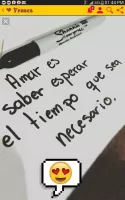 Frases
Sharpie
Amar es
saber esperar
el tiempo que sea
necesario.